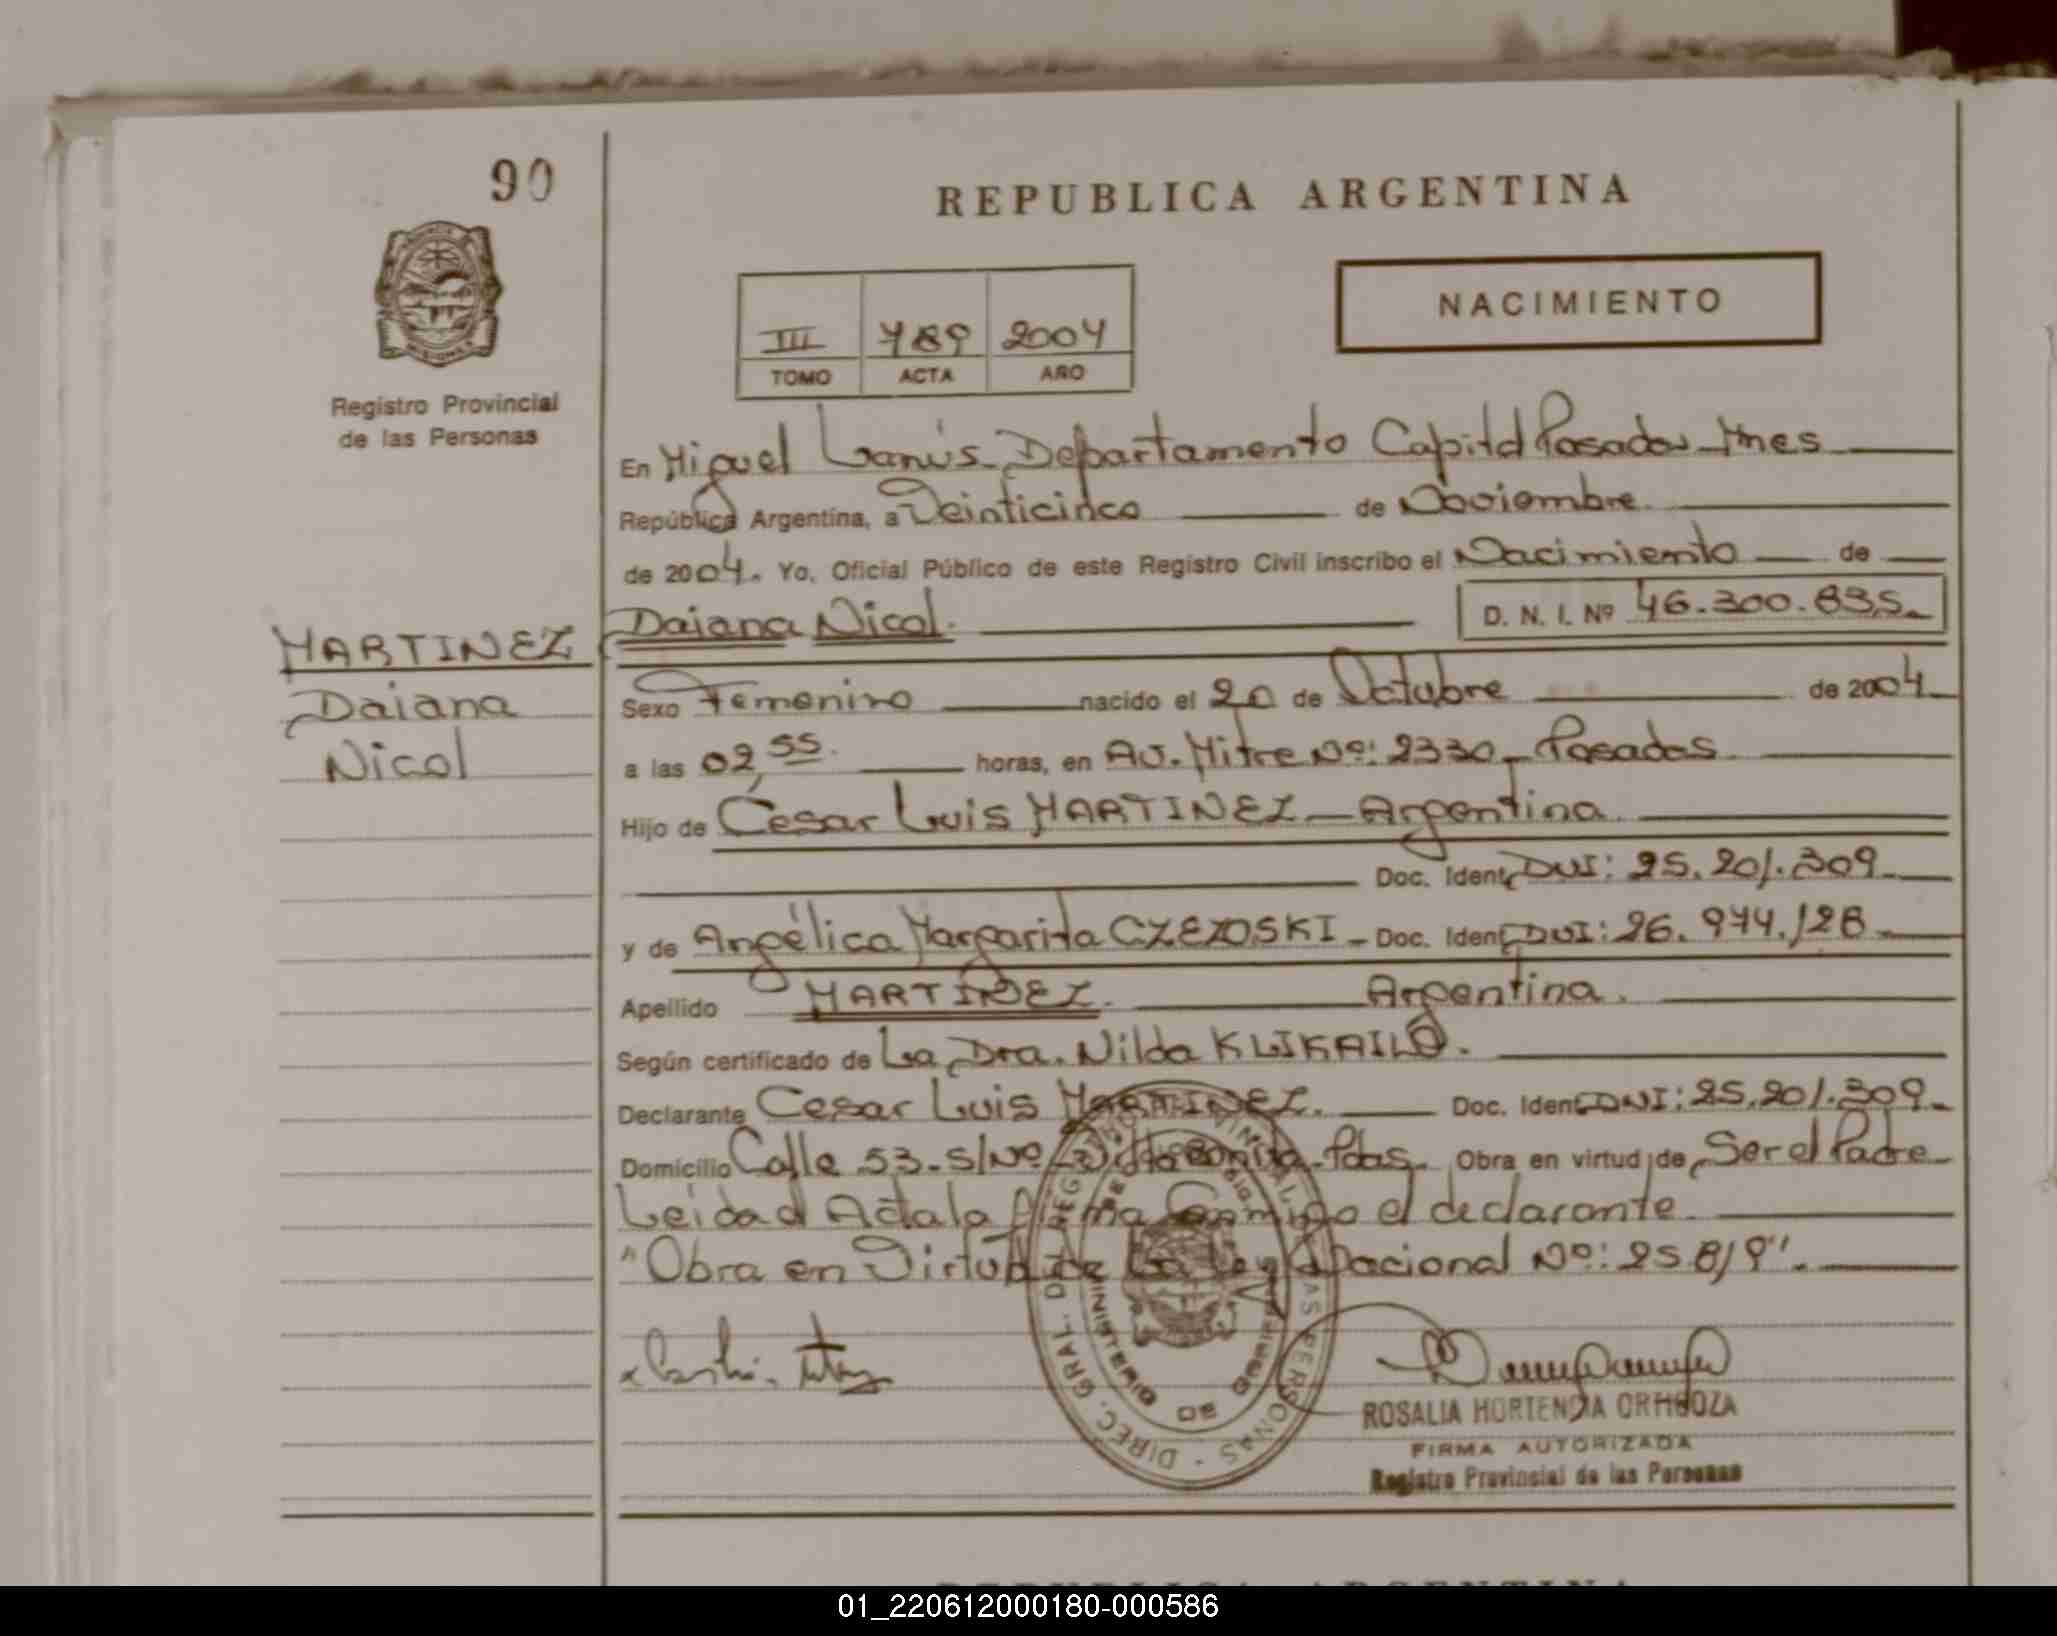 90
REPUBLICA ARGENTINA
NACIMIENTO
III 789 2004
TOMO ACTA AÑO
Registro Provincial
de las Personas
En Miguel Lanús Departamento Capital Posadas Mnes
República Argentina, a Veinticinco de Noviembre
de 2004. Yo, Oficial Público de este Registro Civil inscribo el Nacimiento de
Daiana Nicol. D. N. I. Nº 46.300.835
MARTINEZ
Daiana
Nicol
Sexo Femenino nacido el 20 de Octubre de 2004
a las 02,55 horas, en Av. Mitre Nº: 2330 Posadas
Hijo de César Luis MARTINEZ - Argentina
Doc. Ident. DNI: 25.201.309
y de Angélica Margarita CZEZOSKI - Doc. Ident. DNI: 26.974.128
Apellido MARTINEZ. Argentina.
Según certificado de La Dra. Nilda KLIKAILO.
Declarante Cesar Luis MARTINEZ. Doc. Ident. DNI: 25.201.309
Domicilio Calle 53 - S/Nº - Villa Bonita - Pdas. Obra en virtud de Ser el Padre
Leida el Acta la firma Conmigo el declarante
"Obra en Virtud de La Ley Nacional Nº: 25.819".
DIREC. GRAL. DEL REGISTRO PROVINCIAL DE LAS PERSONAS
MINISTERIO DE GOBIERNO
ROSALIA HORTENCIA ORTIGOZA
FIRMA AUTORIZADA
Registro Provincial de las Personas
01_220612000180-000586